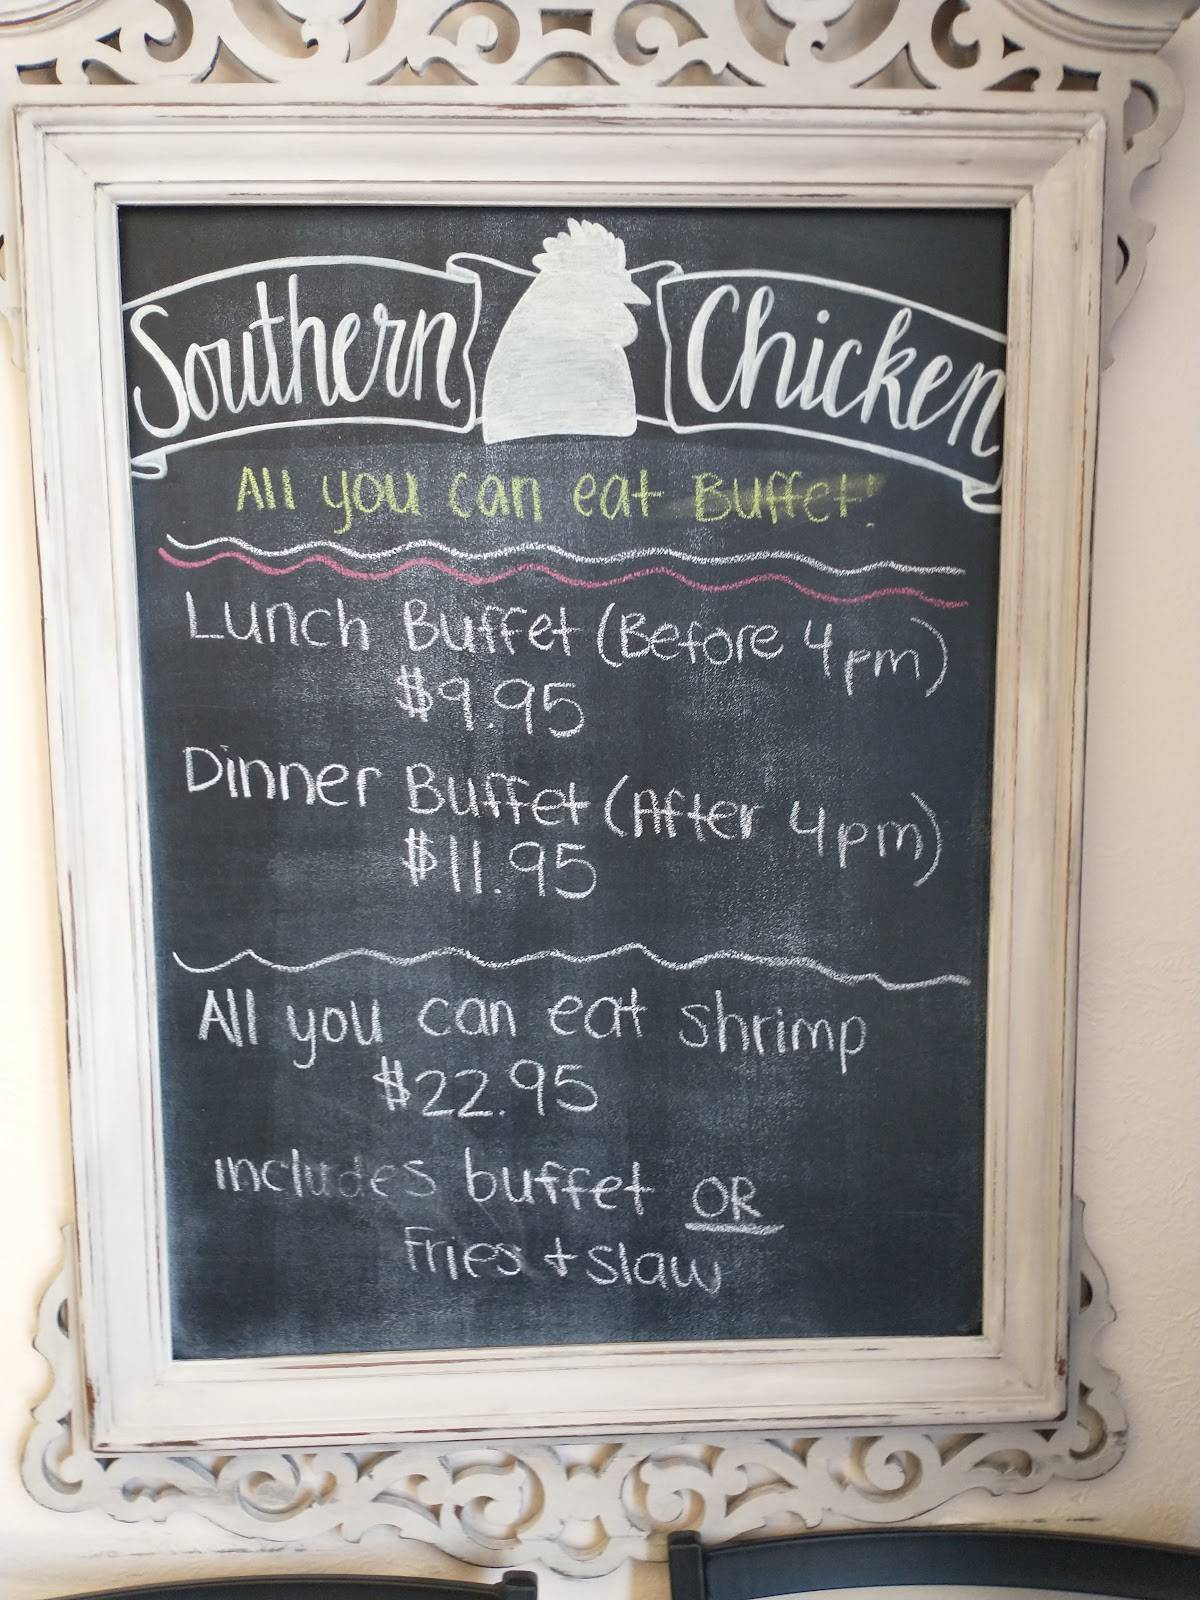 Southern Chicken
All you can eat Buffet!
Lunch Buffet (Before 4pm)
$9.95
Dinner Buffet (After 4pm)
$11.95
All you can eat shrimp
$22.95
includes buffet OR
Fries + slaw